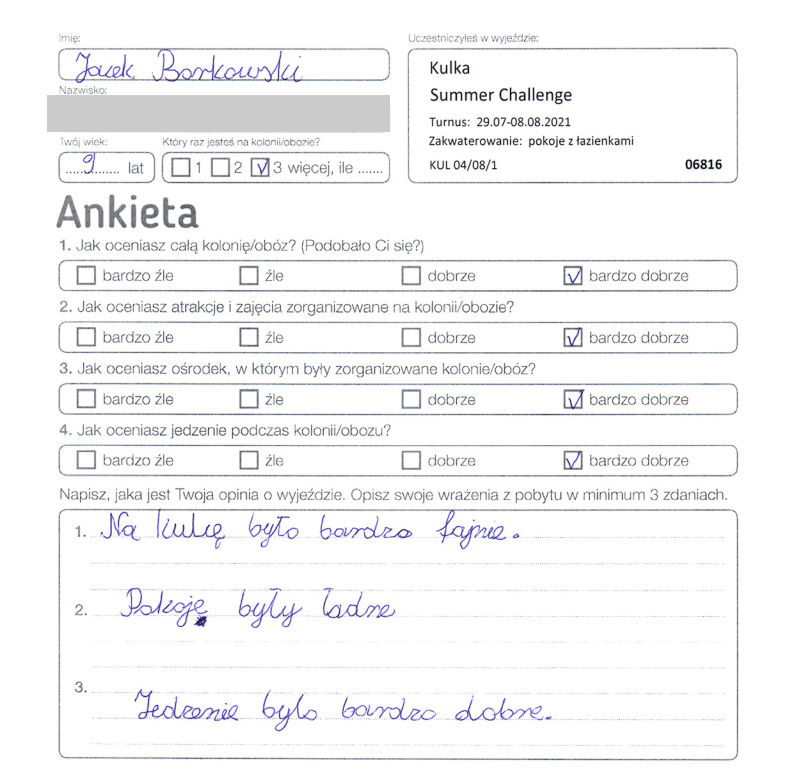 Imię:
Jacek Borkowski
Nazwisko:
Twój wiek:
9 lat
Który raz jesteś na kolonii/obozie?
1 2 3 więcej, ile .......
Uczestniczyłeś w wyjeździe:
Kulka
Summer Challenge
Turnus: 29.07-08.08.2021
Zakwaterowanie: pokoje z łazienkami
KUL 04/08/1 06816
Ankieta
1. Jak oceniasz całą kolonię/obóz? (Podobało Ci się?)
bardzo źle źle dobrze bardzo dobrze
2. Jak oceniasz atrakcje i zajęcia zorganizowane na kolonii/obozie?
bardzo źle źle dobrze bardzo dobrze
3. Jak oceniasz ośrodek, w którym były zorganizowane kolonie/obóz?
bardzo źle źle dobrze bardzo dobrze
4. Jak oceniasz jedzenie podczas kolonii/obozu?
bardzo źle źle dobrze bardzo dobrze
Napisz, jaka jest Twoja opinia o wyjeździe. Opisz swoje wrażenia z pobytu w minimum 3 zdaniach.
1. Na kulcę było bardzo fajne.
2. Pokoję były ładne
3. Jedzenie było bardzo dobre.